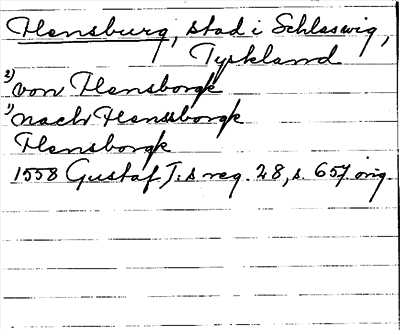 Flensburg, stad i Schleswig,
Tyskland
2) von Flensborgk
1) nach Flenssborgk
Flensborgk
1558 Gustaf I:s reg. 28, s. 657. orig.